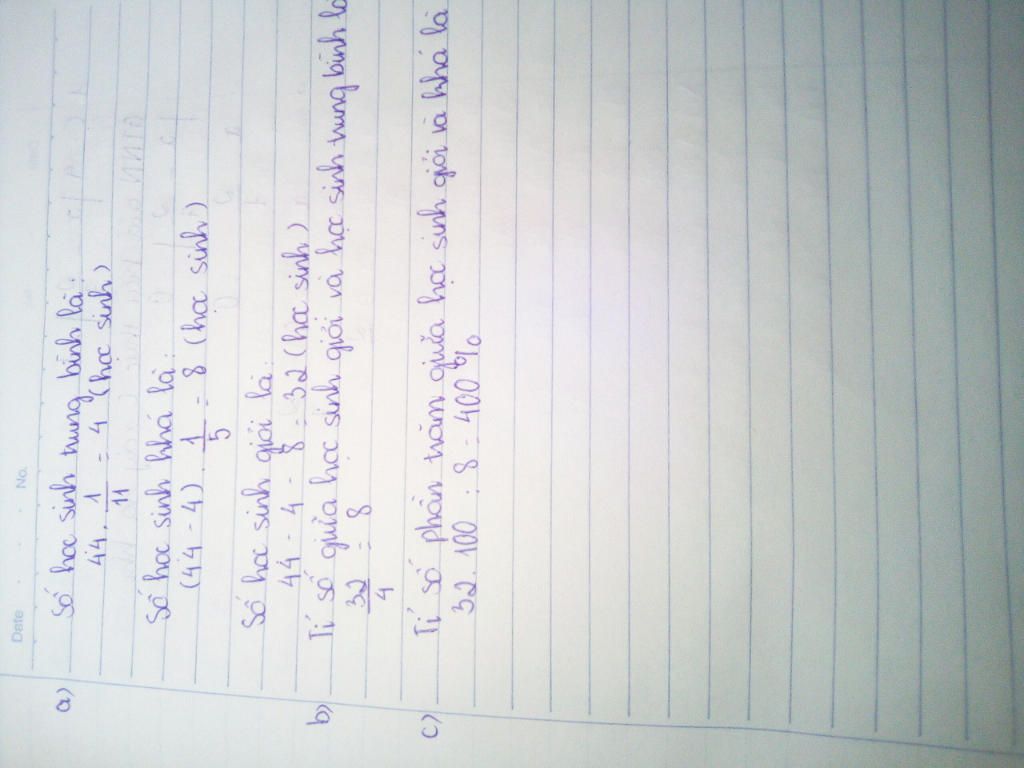 Date No.
a) Số học sinh trung bình là:
44 . 1/11 = 4 (học sinh)
Số học sinh khá là:
(44 - 4) . 1/5 = 8 (học sinh)
Số học sinh giỏi là:
44 - 4 - 8 = 32 (học sinh)
b) Tỉ số giữa học sinh giỏi và học sinh trung bình là
32/4 = 8
c) Tỉ số phần trăm giữa học sinh giỏi và khá là
32 . 100 : 8 = 400 %